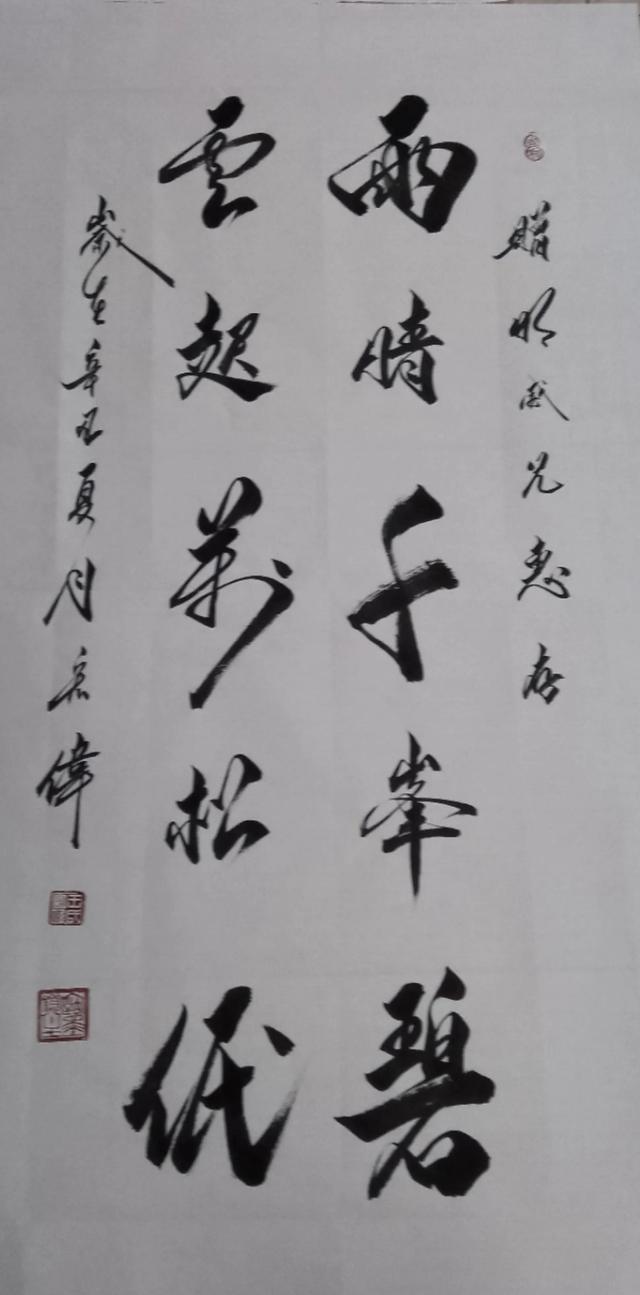 贈明威兄惠存
雨晴千峯碧
雲起萬松低
歲在辛丑夏月岳偉